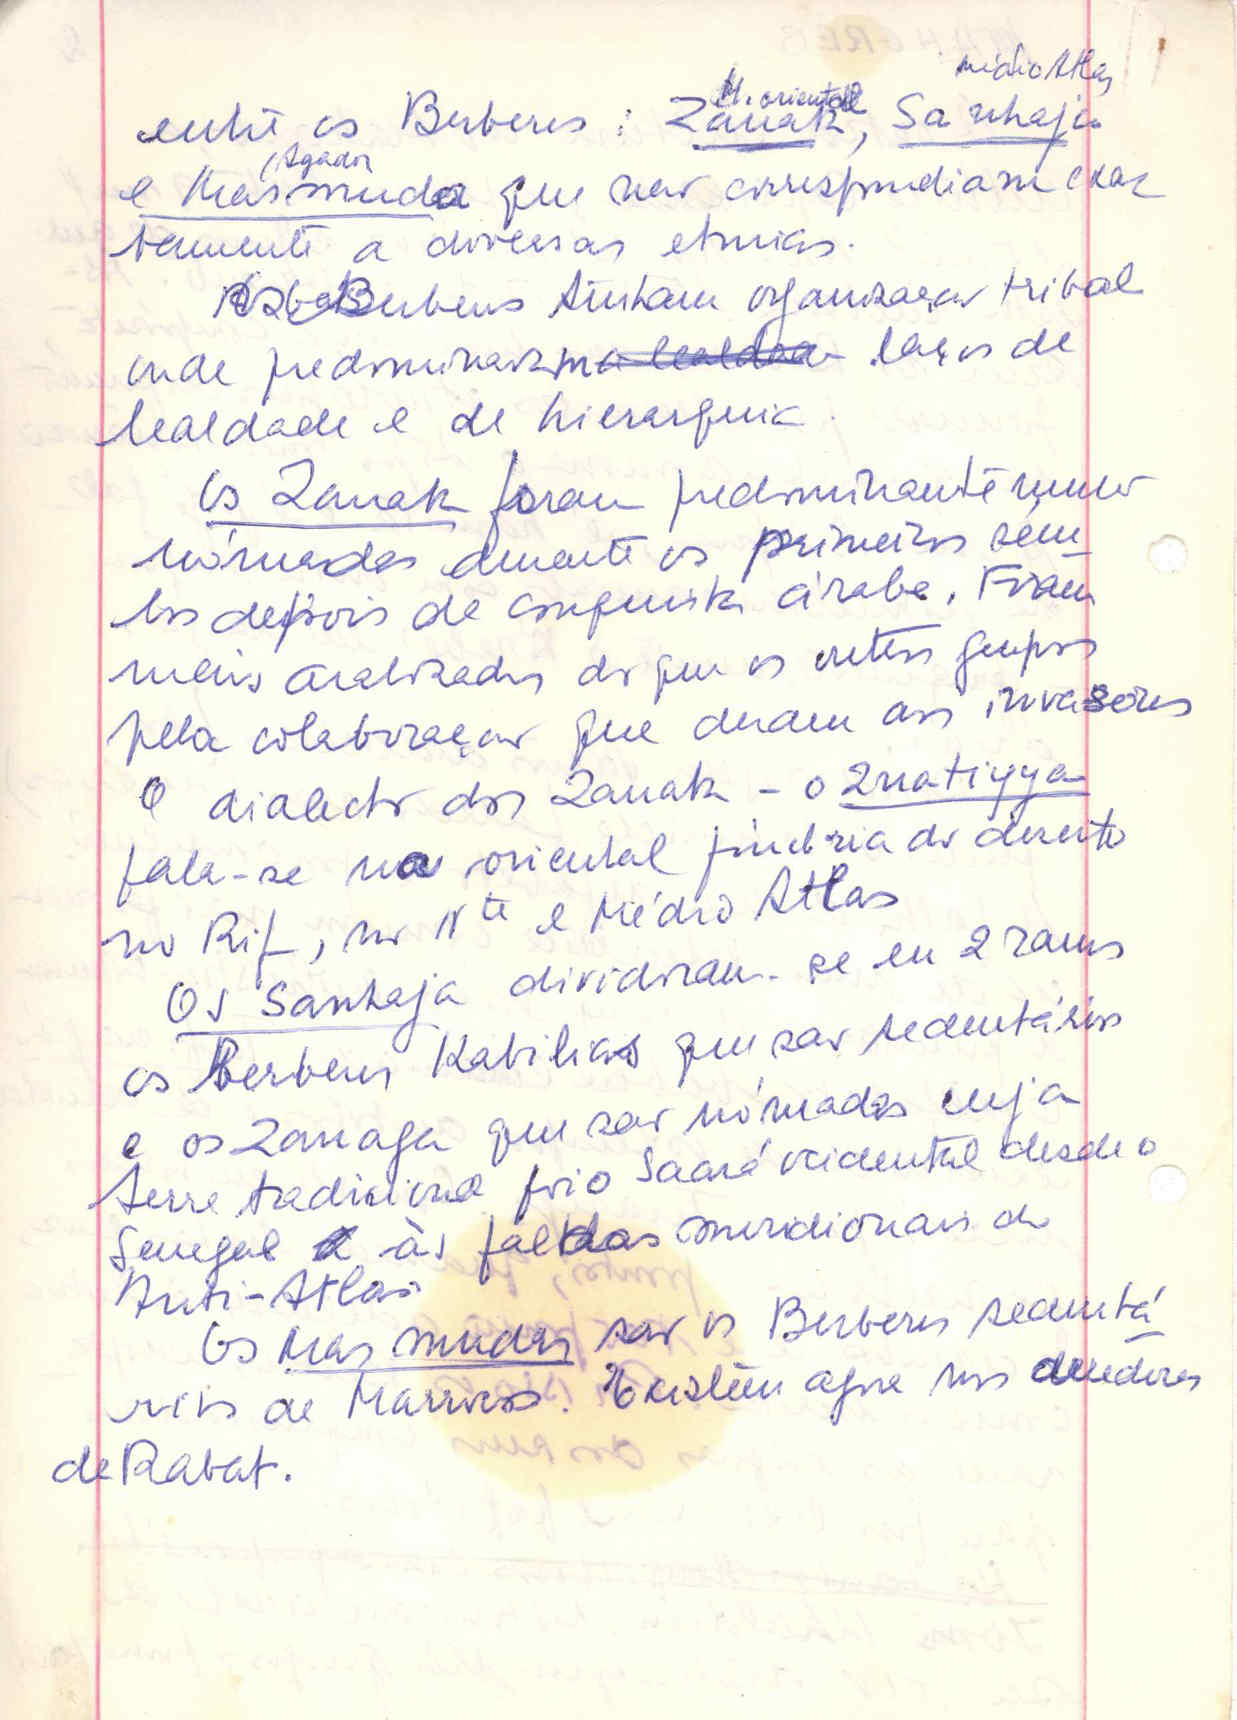 médio Atlas
M. oriental
entre os Berberes : Zanak, Sanhaja
(Agador
e Masmuda que não correspondiam exac
tamente a diversas etnias.
Os Berberes tinham organização tribal
onde predominavam a lealdade laços de
lealdade e de hierarquia.
Os Zanak foram predominantemente
nómadas durante os primeiros sécu_
los depois da conquista árabe. Foram
mais arabizados do que os outros grupos
pela colaboração que deram aos invasores
O dialecto dos Zanak - o Znatiyya
fala-se na oriental fímbria do deserto
no Rif, no Nte e Médio Atlas
Os Sanhaja dividiram-se em 2 ramos
os Berberes Kabilias que são sedentários
e os Zanaga que são nómadas cuja
terra tradicional foi o Saará ocidental desde o
Senegal às faldas meridionais do
Anti-Atlas
Os Masmudas são os Berberes sedentá_
rios de Marrocos. Existem agora nos arredores
de Rabat.